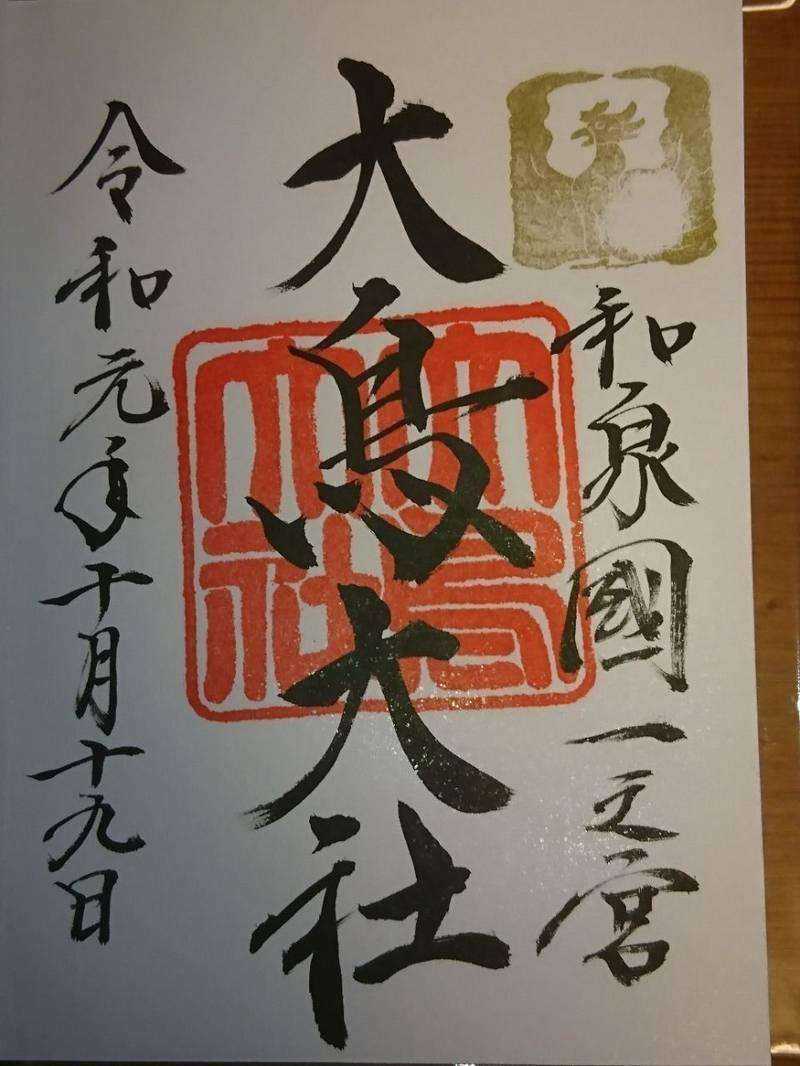 和泉國一之宮
大鳥大社
大鳥大社
令和元年十月十九日